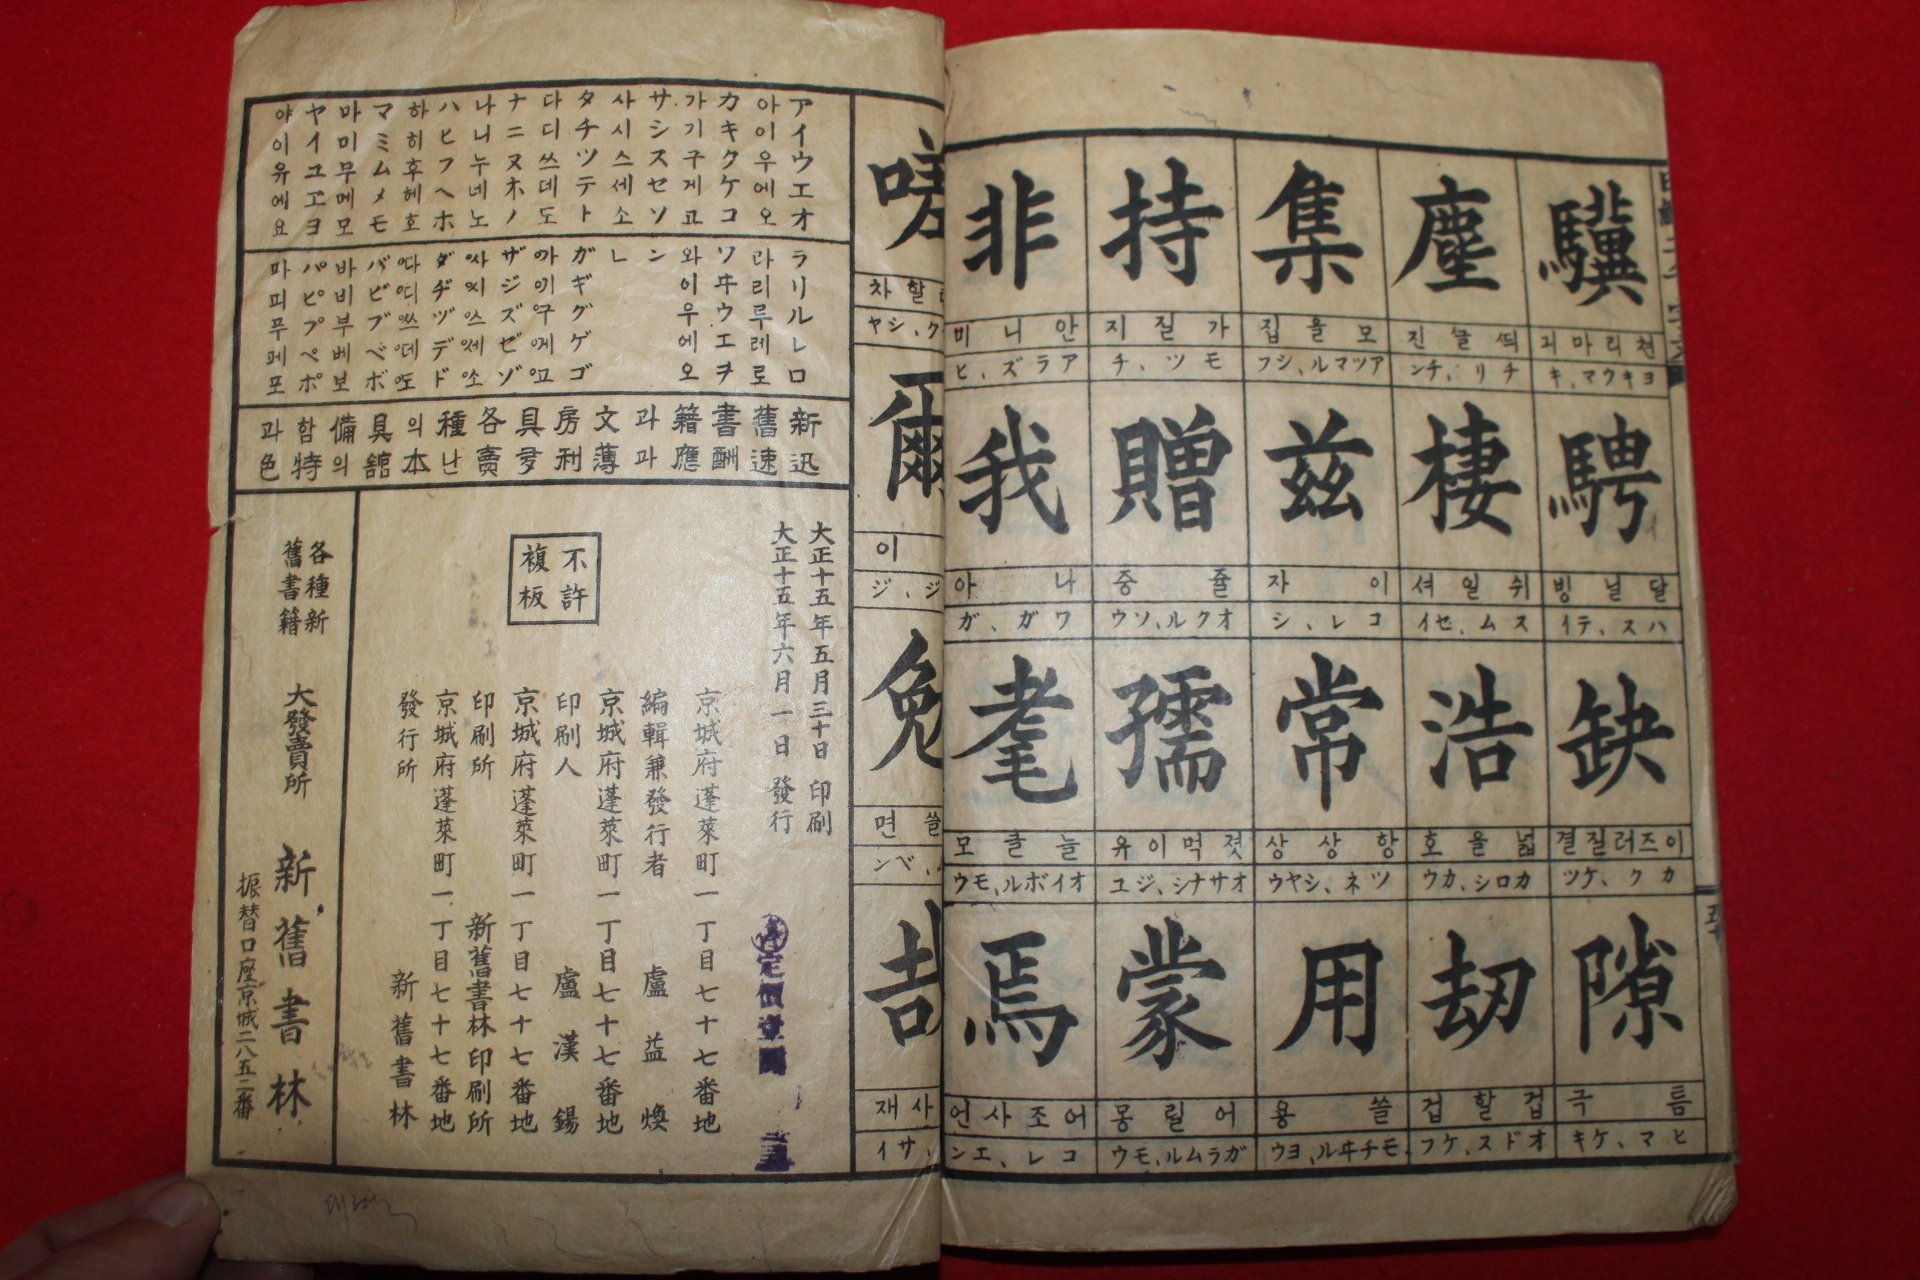 驥 塵 集 持 非
천리마긔 띄글진 모을집 가질지 안니미
キヨキウマ、キ チリ、チン アツマル、シフ モツ、チ アラズ、ヒ
騁 棲 茲 贈 我
달닐빙 쉬일셔 이자 줄중 나아
ハス、テイ スム、セイ コレ、シ オクル、ソウ ワガ、ガ
缺 浩 常 孺 耄
이즈러질결 넓을호 항상상 젓먹이유 늘클모
カク、ケツ カロシ、カウ ツネ、シヤウ オサナシ、ジユ オイボル、モウ
隙 刧 用 蒙 焉
틈극 겁할겁 쓸용 어릴몽 어조사언
ヒマ、キケ オドス、ケフ モチヰル、ヨウ ガラムル、ウモ コレ、エン
嗟
차
爾
이
ジ、ジ
免
쓸 면
哉
사 재
アイウエオ
아이우에오
カキクケコ
가기구게고
サシスセソ
사시스세소
タチツテト
다디쓰데도
ナニヌネノ
나니누네노
ハヒフヘホ
하히후헤호
マミムメモ
마미무메모
ヤイユヱヨ
야이유에요
ラリルレロ
라리루레로
ワヰウエヲ
와이우에오
ン
ㄴ
ガギグゲゴ
ザジズゼゾ
ダヂヅデド
バビブベボ
바비부베보
パピプペポ
마피푸페포
新舊書籍과文房具各種의具備함과
迅速酬應과薄利多賣난本舘의特色
大正十五年五月三十日 印刷
大正十五年六月一日 發行
不許
複板
京城府蓬萊町一丁目七十七番地
編輯兼發行者 盧益煥
京城府蓬萊町一丁目七十七番地
印刷人 盧漢鍚
京城府蓬萊町一丁目七十七番地
印刷所 新舊書林印刷所
京城府蓬萊町一丁目七十七番地
發行所 新舊書林
定價壹圓
各種新
舊書籍
大發賣所 新舊書林
振替口座京城二八五二番